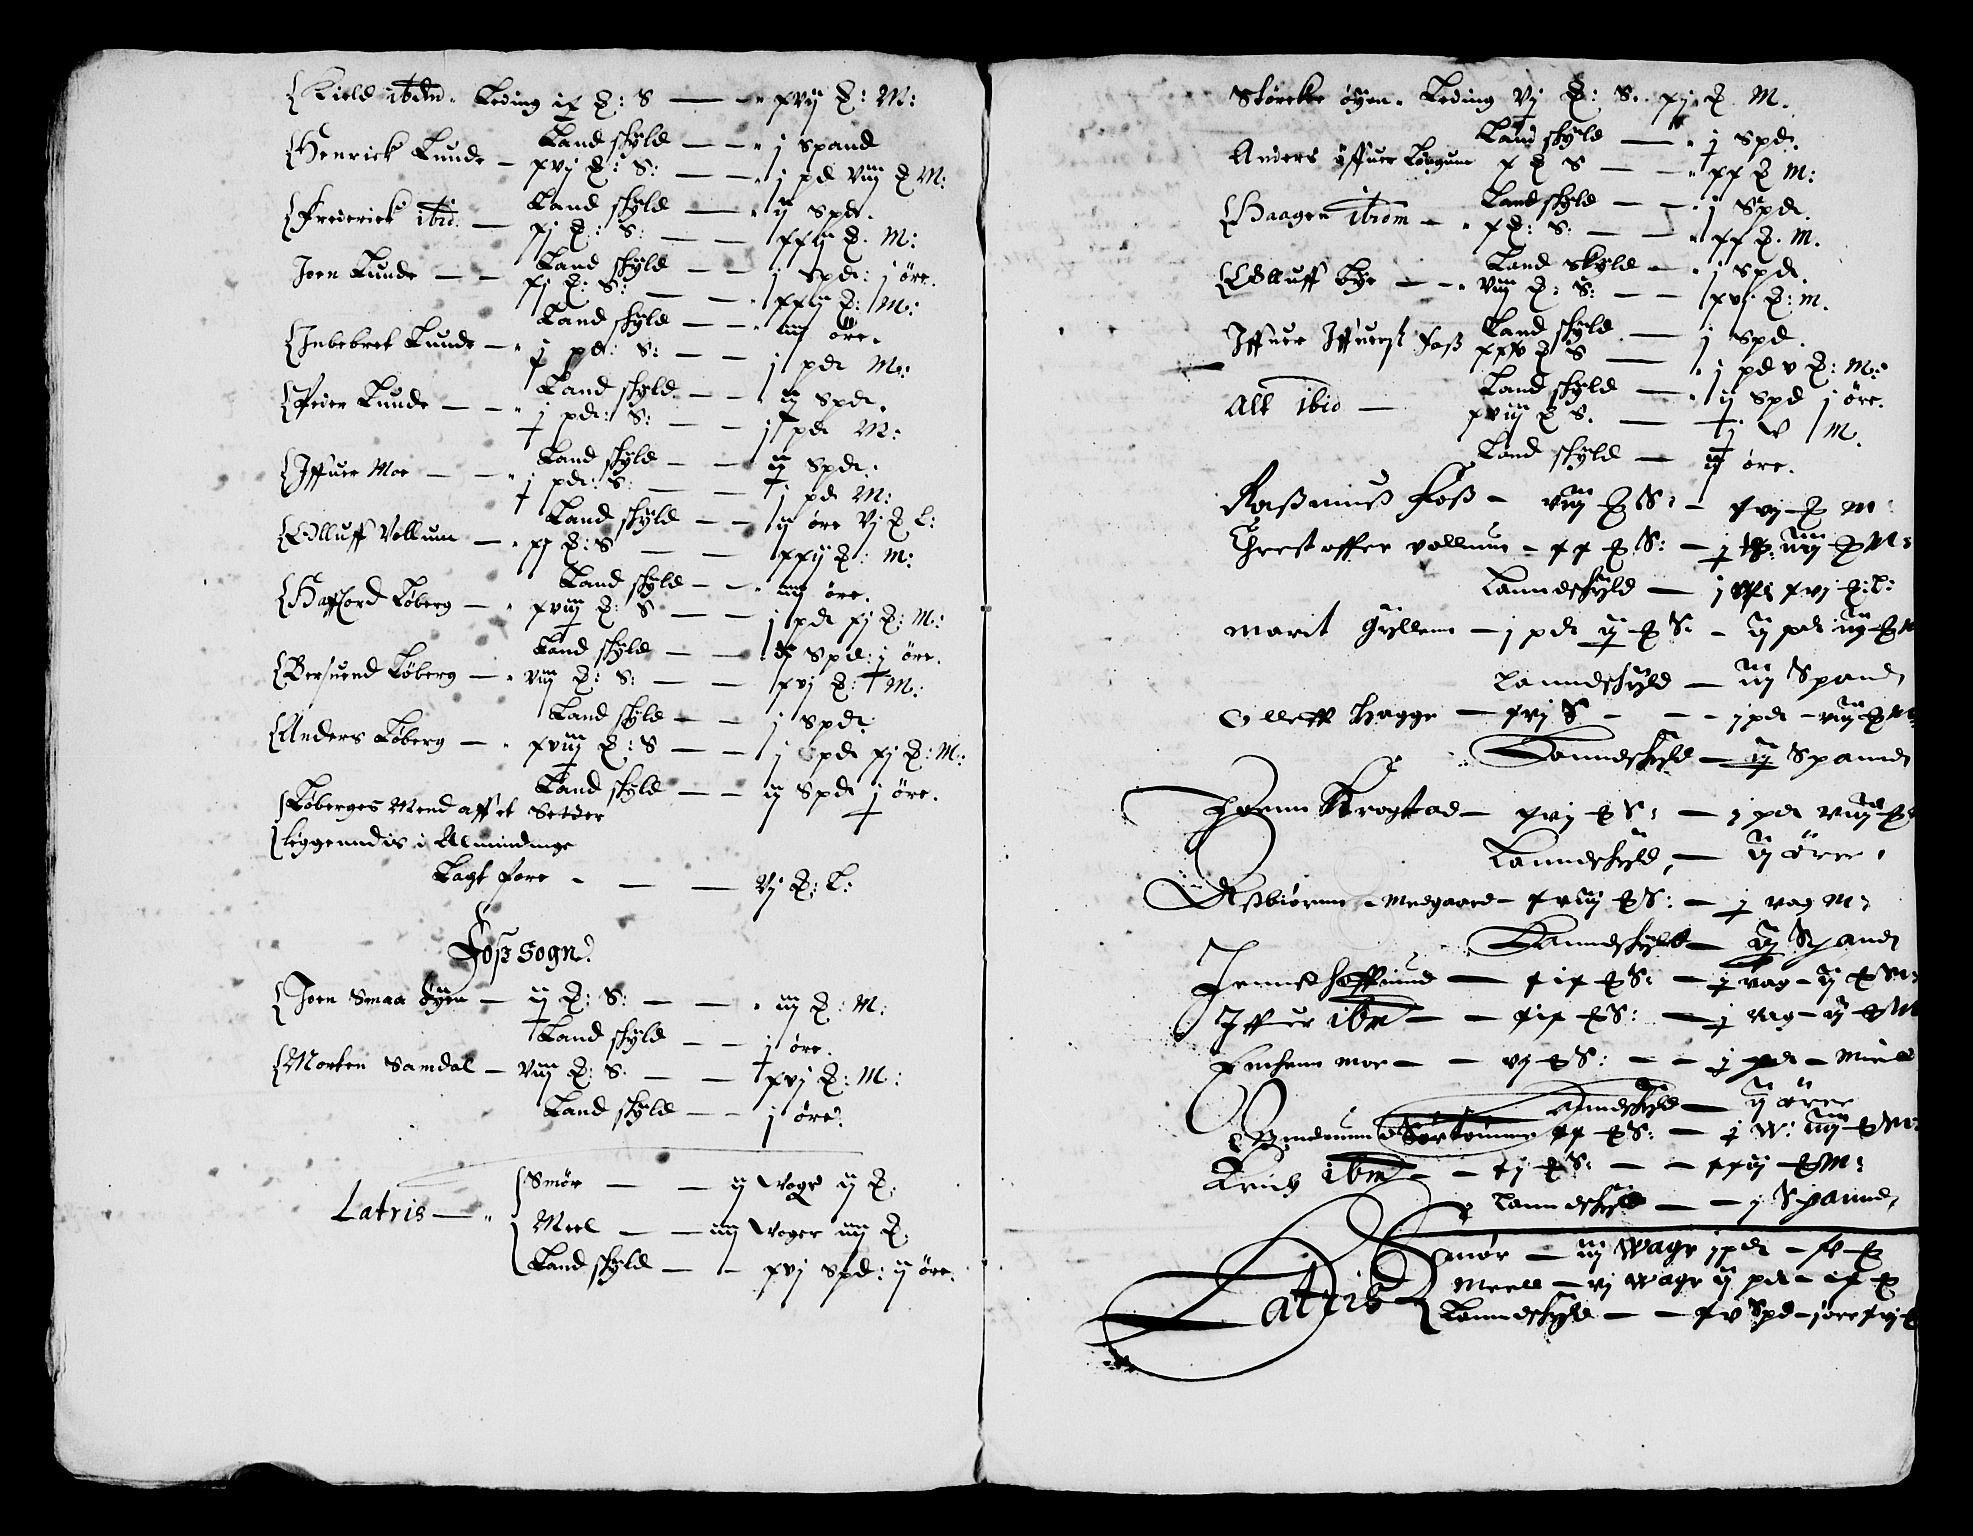 Kield ibdm. Leding ix ℔: S — xvij ℔: M:
Land skyld — j Spand
Henrick Lunde — xvj ℔: S: — j pd viij ℔ M:
Land skyld — ij Spd.
Frederick ibid. — xj ℔: S: — xxij ℔. M:
Land skyld — j Spd: j øre.
Joen Lunde — xj ℔: S: — xxij ℔: M:
Land skyld — iiij øre.
Inbebret Lunde — j pd: S: — j pd M:
Land skyld — ij Spd.
Peder Lunde — j pd: S: — j pd M:
Land skyld — ij Spd.
Iffuer Moe — j pd: S: — j pd M:
Land skyld — ij øre vj ℔ L:
Olluff Vollum — xj ℔: S — xxij ℔: M:
Land skyld — iiij øre.
Haffuord Løberg — xviij ℔: S — j pd xj ℔: M:
Land skyld — ij Spd: j øre.
Bersuend Løberg — viij ℔: S: — xvj ℔: M:
Land skyld — j Spd.
Anders Løberg — xviij ℔: S — j pd xj ℔: M:
Land skyld — ij Spd j øre.
Løberges Mend aff et Setder
liggenndis i Alminding
Lagt fore — vj ℔: L:
Foss Sogn.
Joen Smaa Øyen — ij ℔: S: — iiij ℔: M:
Land skyld — j øre.
Morten Samdal — viij ℔: S: — xvj ℔: M:
Land skyld — j øre.
Latris —
Smør — ij Voge ij ℔.
Meel — iiij Voger iiij ℔.
Land skyld — xvj Spd: ij øre.
Størcke øyen. Leding vj ℔: S. xj ℔ M.
Land skyld — j Spd.
Anders øffuer x ℔ S — xx ℔ M:
Land skyld — j Spd.
Haagen ibidm — x ℔: S: — xx ℔. M.
Land skyld — j Spd.
Olluff Bye — viij ℔: S: — xvj ℔: M.
Land skyld — j Spd.
Iffuer Iffuerß Foß xxv ℔ S — j pd v ℔: M:
Land skyld — ij Spd j øre.
Alt ibid — xviij ℔ S. — j M.
Land skyld — ij øre.
Raßmuß Foß — viij ℔ S: — xvj ℔ M:
Chrestoffer vollum — xx ℔ S: — j iiij ℔ M:
Lanndskyld — j xvj ℔: L:
Marit Gyllem — j pd ij ℔ S: — ij pd iiij ℔ M
Lanndskyld — iij Spand
Olleff Hagge — xvj S — j pd — viij ℔ M:
Lanndskyld — ij Spannd
Joenn Krogstad — xvj ℔ S: — j pd viij ℔
Lanndskyld — ij øree.
Aßbiørnn Medgaard — xviij ℔ S: — j vog M:
Lanndskyld — ij Spand
Jenns Hoffsund — xix ℔ S: — j vog — ij ℔ M:
Iffuer ibm — xix ℔ S: — j vog — ij ℔ M
moe — vj ℔ S: — j pd — Miell
Lanndskyld — ij øree
Sørtomme xx ℔ S: — j W: iiij ℔ M:
Erich ibm — xj ℔ S: — xxij ℔ M:
Lanndskyld — j Spannd
Latris
Smør — iij Wage j pd — xv ℔
Meell — vj Wage ij pd — ix ℔
Lanndskyld — xv Spd — j øre xvj ℔